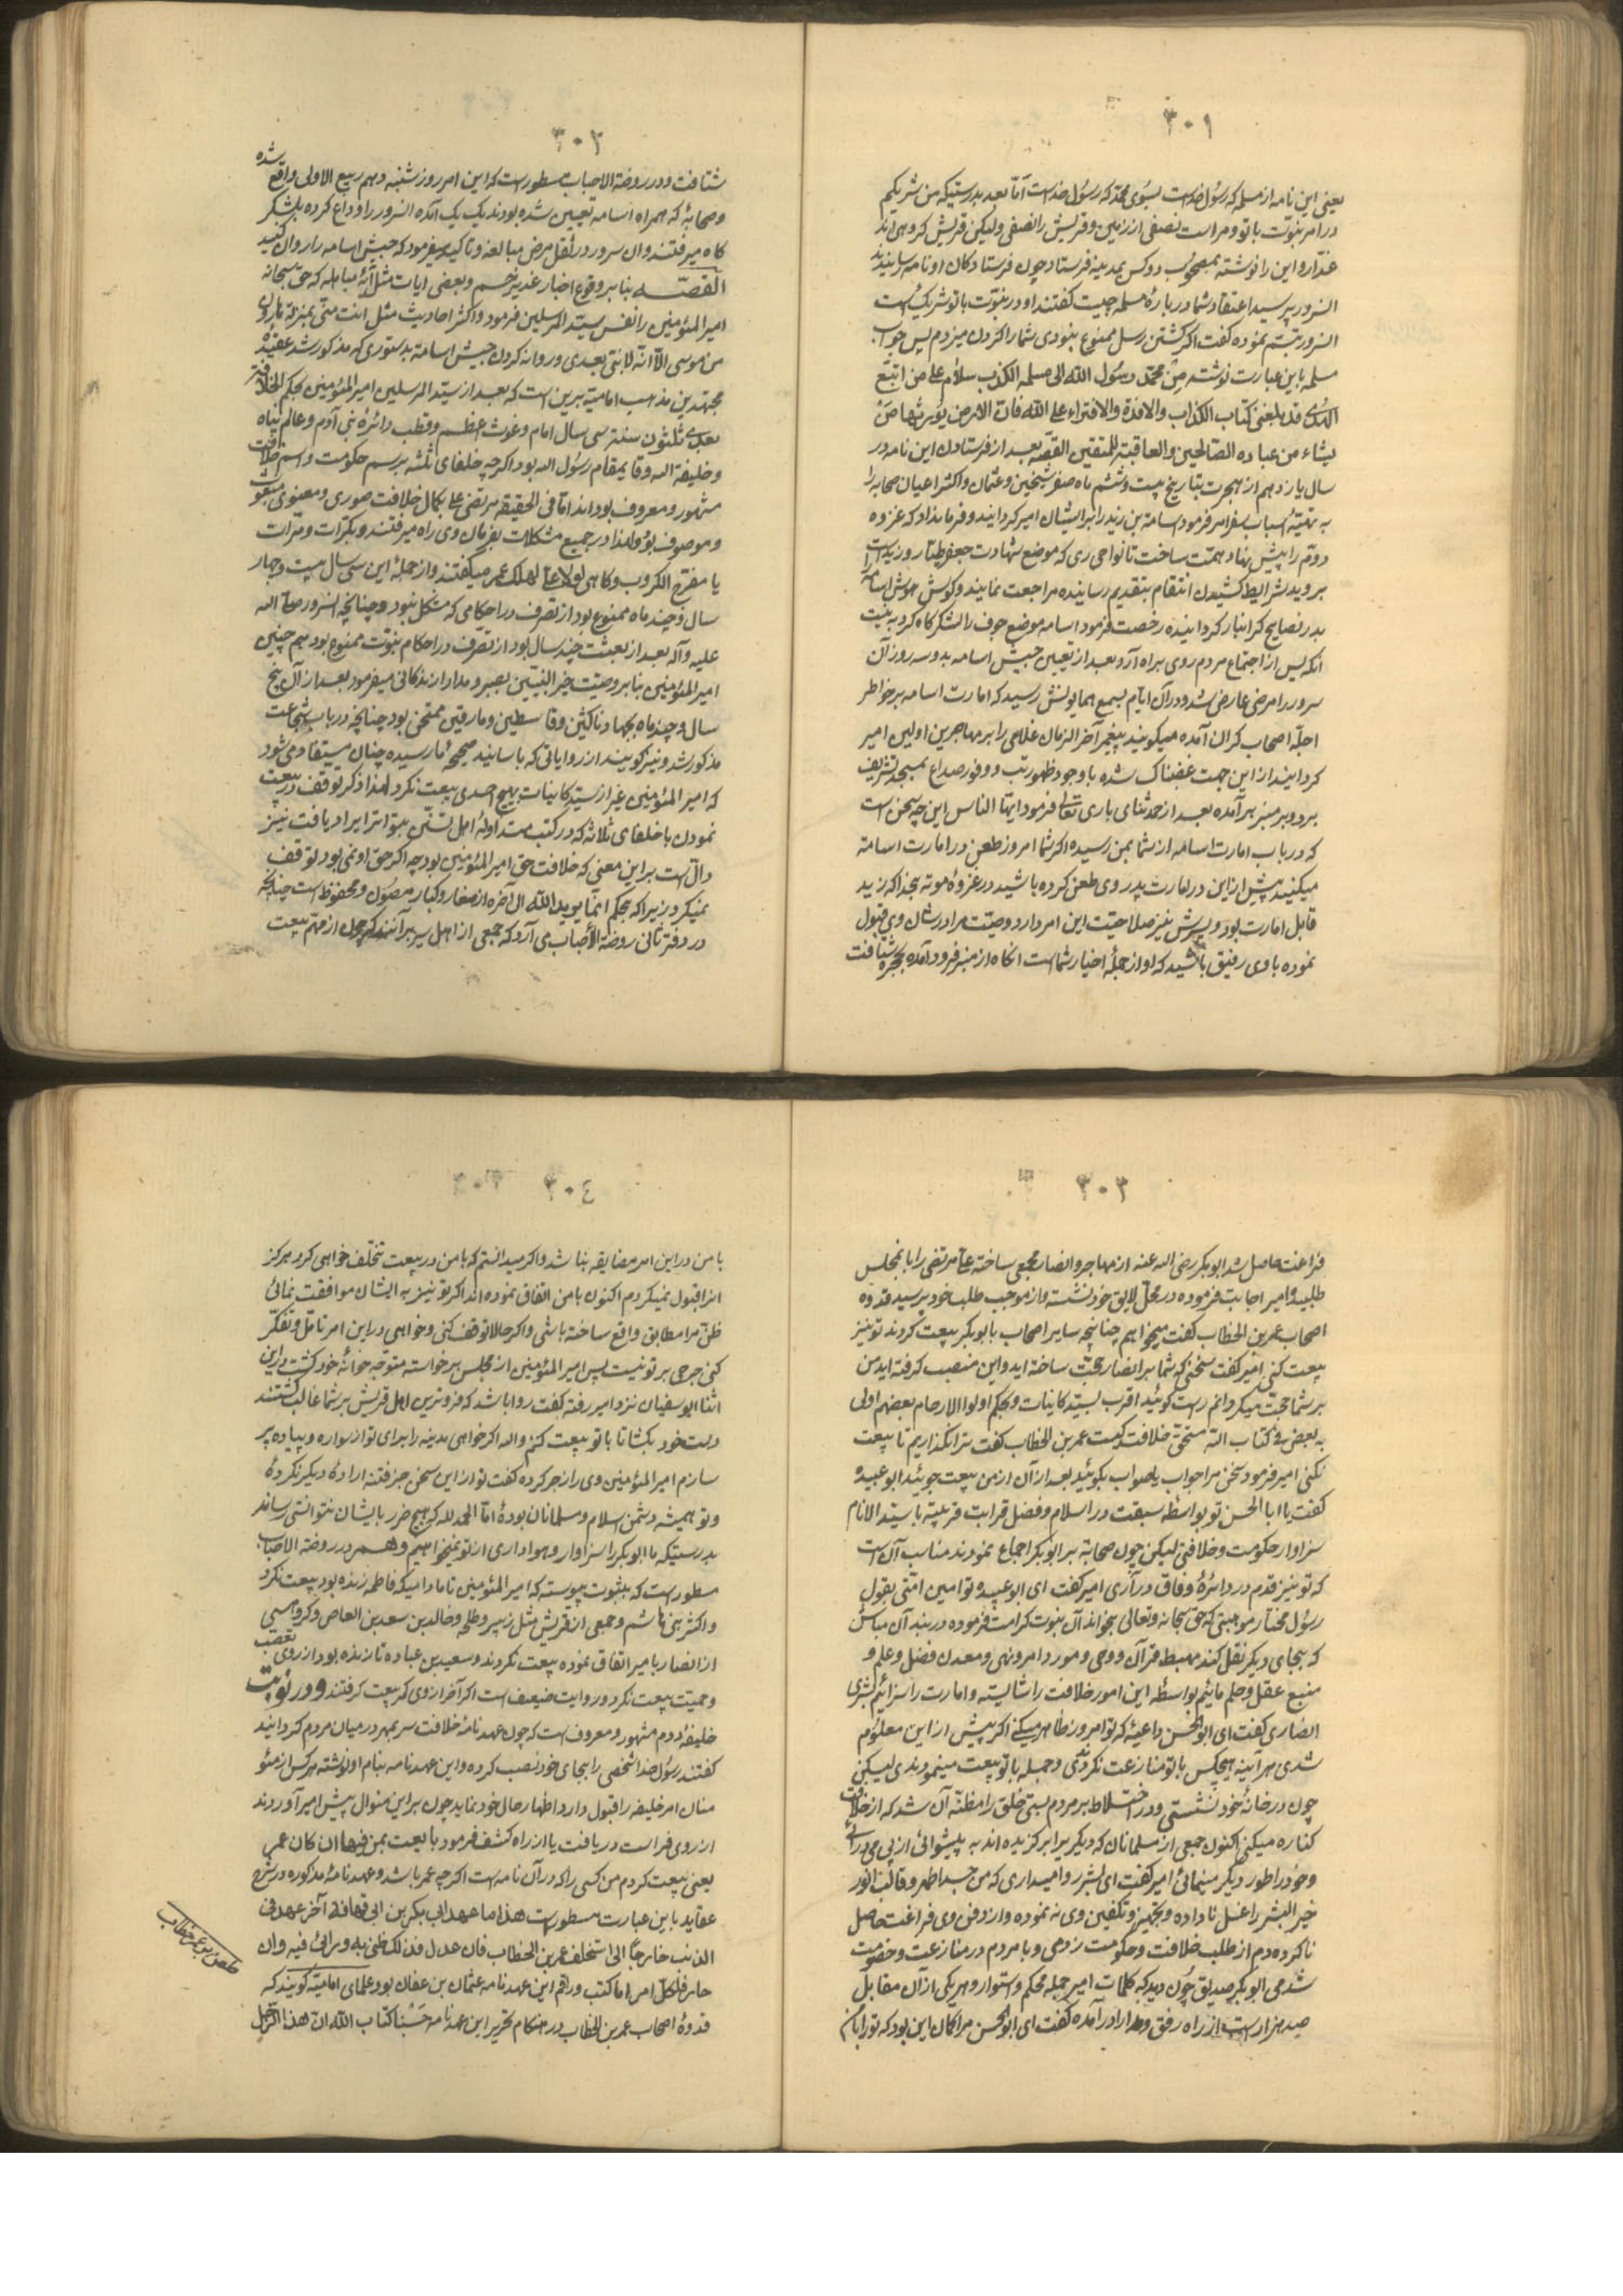 ٣٠١
یعنی این نامه از مسلمه که رسول خداست بسوی محمد که رسول خداست اما بعد بدرستیکه من شریکم
در امر نبوت با تو و مراست نصفی از زمین و قریش را نصفی ولیکن قریش گروهی اند
غدار و این را نوشته بمصحوب دو کس بمدینه فرستاد چون فرستادگان او نامه رسانیدند
آنسرور پرسید اعتقاد شما درباره مسلمه چیست گفتند او در نبوت با تو شریک است
آنسرور تبسم نموده گفت اگر کشتن رسل ممنوع نبودی شما را گردن میزدم پس جواب
مسلمه باین عبارت نوشته من محمد رسول الله الی مسلمه الکذب سلام علی من اتبع
الهدی قد بلغنی کتاب الکذاب والافتراء علی الله فان الارض یورثها من
یشاء من عباده الصالحین والعاقبة للمتقین القصه بعد از فرستادن این نامه در
سال یازدهم از هجرت بتاریخ بیست و ششم ماه صفر شیخین و عثمان و اکثر اعیان صحابه را
به تهیهٔ اسباب سفر امر فرمود اسامة بن زید را بر ایشان امیر گردانید و فرمان داد که غزوه
روم را پیش نهاد همت ساخت تا نواحی ری که موضع شهادت جعفر طیار و زید است
بروید شرایط کشیدن انتقام بتقدیم رسانیده مراجعت نمایند و گوش هوش اسامه را
بدر نصایح گرانبار گردانیده رخصت فرمود اسامه موضع جوف را لشکرگاه کرد به نیت
آنکه پس از اجتماع مردم روی براه آرد بعد از تعیین جیش اسامه بدو سه روز آن
سرور را مرضی عارض شد و در آن ایام بسمع همایونش رسید که امارت اسامه بر خواطر
اجلهٔ اصحاب گران آمده میگویند پیغمبر آخر الزمان غلامی را بر مهاجرین اولین امیر
گردانیده از این جهت غضبناک شده با وجود ظهور تب و وفور صداع بمسجد تشریف
برد و بر منبر برآمده بعد از حمد ثنای باری تعالی فرمود ایها الناس این چه سخن است
که در باب امارت اسامه از شما بمن رسیده اگر شما امروز طعن در امارت اسامه
میکنید پیش از این در امارت پدر وی طعن کرده باشید در غزوهٔ موته بخدا که زید
قابل امارت بود و پسرش نیز صلاحیت این امر دارد وصیت مرا در شان وی قبول
نموده با وی رفیق باشید که او از جملهٔ اخیار شماست آنگاه از منبر فرود آمده بحجره شتافت
٣٠٢
شتافت و در روضة الاحباب مسطور است که این امر روز شنبه دهم ربیع الاولی واقع شده
و صحابهٔ که همراه اسامه تعیین شده بودند یک یک آمده آنسرور را وداع کرده بلشکر
گاه میرفتند و آن سرور در ثقل مرض مبالغه و تاکید میفرمود که جیش اسامه را روان کنید
القصه بنا بر وقوع اخبار غدیر خم و بعضی ایات مثل آیهٔ مباهله که حق سبحانه
امیر المؤمنین را نفس سید المرسلین فرمود و اکثر احادیث مثل انت منی بمنزلة هارون
من موسی الا انه لا نبی بعدی و روانه کردن جیش اسامة بدستوری که مذکور شد عقیدهٔ
مجتهدین مذهب امامیه برین است که بعد از سید المرسلین امیر المؤمنین بحکم الخلافة
بعدی ثلثون سنة سی سال امام و غوث اعظم و قطب دائرهٔ بنی آدم و عالم پناه
و خلیفة الله و قایمقام رسول الله بود اگرچه خلفای ثلثه برسم حکومت و اسم خلافت
مشهور و معروف بوده اند اما فی الحقیقة مرتضی علی بکمال خلافت صوری و معنوی منعوت
و موصوف بود و لهذا در جمیع مشکلات بفرمان وی راه میرفتند و بکرات و مرات
یا مفرج الکروب و گاهی لولا علی لهلک عمر میگفتند و از جملهٔ این سی سال بیست و چهار
سال و چند ماه ممنوع بود از تصرف در احکامی که مشکل نبود و چنانچه آنسرور صلی الله
علیه و آله بعد از بعثت چند سال بود از تصرف در احکام نبوت ممنوع بود هم چنین
امیر المؤمنین بنا بر وصیت خیر النبیین بصبر و مدارا زندگانی میفرمود بعد از آن پنج
سال و چند ماه بجهاد ناکثین و قاسطین و مارقین ممتحن بود چنانچه در باب شجاعت
مذکور شد و نیز گویند از روایاتی که باسانید صحیحه بما رسیده چنان مستفاد می شود
که امیر المؤمنین غیر از سید کاینات بهیچ احدی بیعت نکرد لهذا ذکر توقف در بیعت
نمودن با خلفای ثلاثه که در کتب متداولهٔ اهل تسنن بتواتر ایراد یافت نیز
دال است بر این معنی که خلافت حق امیر المؤمنین بود چه اگر حق او نمی بود توقف
نمیکرد زیرا که بحکم انما یرید الله الی آخره از صغار و کبار مصون و محفوظ است چنانچه
در دفتر ثانی روضة الاحباب می آرد که جمعی از اهل سیر برآنند که چون از مهم بیعت
٣٠٣
فراغت حاصل شد ابو بکر رضی الله عنه از مهاجر و انصار مجمعی ساخته علی مرتضی را بانمجلس
طلبید و امیر اجابت فرموده در محل لایق خود نشسته و از موجب طلب خود پرسید قدوه
اصحاب عمر بن الخطاب گفت میخواهم چنانچه سایر اصحاب با بو بکر بیعت کردند تو نیز
بیعت کنی امیر گفت سخنی که شما بر انصار حجت ساخته اید و این منصب گرفته اید من
بر شما حجت میگردانم راست گوئید اقرب بسید کاینات و بحکم اولوا الارحام بعضهم اولی
به بعض فی کتاب الله مستحق خلافت کیست عمر بن الخطاب گفت ترا نگذاریم تا بیعت
نکنی امیر فرمود سخن مرا جواب باصواب بگوئید بعد از آن از من بیعت جوئید ابو عبیده
گفت یا ابا الحسن تو بواسطهٔ سبقت در اسلام و فضل قرابت قریبه با سید الانام
سزاوار حکومت و خلافتی لیکن چون صحابه بر ابو بکر اجماع نمودند مناسب آن است
که تو نیز قدم در دائرهٔ وفاق درآری امیر گفت ای ابو عبیده تو امین امتی بقول
رسول مختار موهبتی که حق سبحانه و تعالی بخواندان نبوت کرامت فرموده در بند آن مباش
که بجای دیگر نقل کنند مهبط قرآن و وحی و مورد امر و نهی و معدن فضل و علم و
منبع عقل و حلم مائیم بواسطهٔ این امور خلافت را شایسته و امارت را سزائیم بشری
انصاری گفت ای ابو الحسن داعیهٔ که تو امروز ظاهر میکنی اگر پیش از این معلوم
شدی هر آینه هیچکس با تو منازعت نکردی و جمله با تو بیعت مینمودندی لیکن
چون در خانهٔ خود نشستی و در اختلاط بر مردم بستی خلق را مظنه آن شد که از خلافت
کناره میکنی اکنون جمعی از مسلمانان که دیگری را برگزیده اند به پیشوائی از پی می درآئی
و خود را طور دیگر مینمائی امیر گفت ای بشر روا میداری که من جسد اطهر و قالب انور
خیر البشر را غسل ناداده و تجهیز و تکفین وی نه نموده و از دفن وی فراغت حاصل
ناکرده دم از طلب خلافت و حکومت زدمی و با مردم در منازعت و خصومت
شدمی ابو بکر صدیق چون دید که کلمات امیر جمله محکم و استوار و هر یکی از آن مقابل
صد هزار است از راه رفق و مدارا درآمده گفت ای ابو الحسن مرا گمان این بود که تو را
٣٠٤
با من در این امر مضایقه نباشد و اگر میدانستم که با من در بیعت تخلف خواهی کرد هرگز
آنرا قبول نمیکردم اکنون با من اتفاق نموده اند اگر تو نیز به ایشان موافقت نمائی
ظن مرا مطابق واقع ساخته باشی و اگر حالا توقف کنی و خواهی در این امر تامل و تفکر
کنی حرجی بر تو نیست پس امیر المؤمنین از مجلس برخواسته متوجه خانهٔ خود گشت در این
اثنا ابو سفیان نزد امیر رفته گفت روا باشد که فروترین اهل قریش بر شما غالب گشتند
دست خود بکشا تا با تو بیعت کنم والله اگر خواهی مدینه را برای تو از سواره و پیاده پر
سازم امیر المؤمنین وی را زجر کرده گفت تو از این سخن جز فتنه اراده دیگر نکرده
و تو همیشه دشمن اسلام و مسلمانان بودهٔ اما الحمد لله که هیچ ضرر بایشان نتوانستی رساند
بدرستیکه ما ابو بکر را سزاوار و هواداری از تو نمیخواهیم و هم در روضة الاحباب
مسطور است که بثبوت پیوسته که امیر المؤمنین تا مادامیکه فاطمه زنده بود بیعت نکرد
و اکثر بنی هاشم و جمعی از قریش مثل زبیر و طلحه و خالد بن سعد بن العاص و گروهی
از انصار با میر اتفاق نموده بیعت نکردند و سعید بن عباده تا زنده بود از روی تعصب
و حمیت بیعت نکرد و روایت ضعیف است آخر از وی گر بیعت گرفتند و در نوبت
خلیفهٔ دوم مشهور و معروف است که چون عهدنامهٔ خلافت سر بمهر در میان مردم گردانید
گفتند رسول خدا شخصی را بجای خود نصب کرده و این عهدنامه بنام او نوشته هر کس از مؤ
منان امر خلیفه را قبول دارد اظهار حال خود نماید چون بر این منوال پیش امیر آوردند
از روی فراست دریافت یا از راه کشف فرمود بایعت بمن فیها ان کان عمر
یعنی بیعت کردم من کسی را که در آن نامه است اگرچه عمر باشد و عهدنامهٔ مذکوره در شرح
عقاید باین عبارت مسطور است هذا ما عهد ابی بکر بن ابی قحافة آخر عهد فی
الدنیا خارجا الی استخلف عمر بن الخطاب فان عدل فذلک ظنی به و رائی فیه وان
جار فلکل امر اما کتب و راقم این عهدنامه عثمان بن عفان بود علمای امامیه گویند که
قدوهٔ اصحاب عمر بن الخطاب در هنگام تحریر این عهدنامه حسبنا کتاب الله ان هذا الرجل